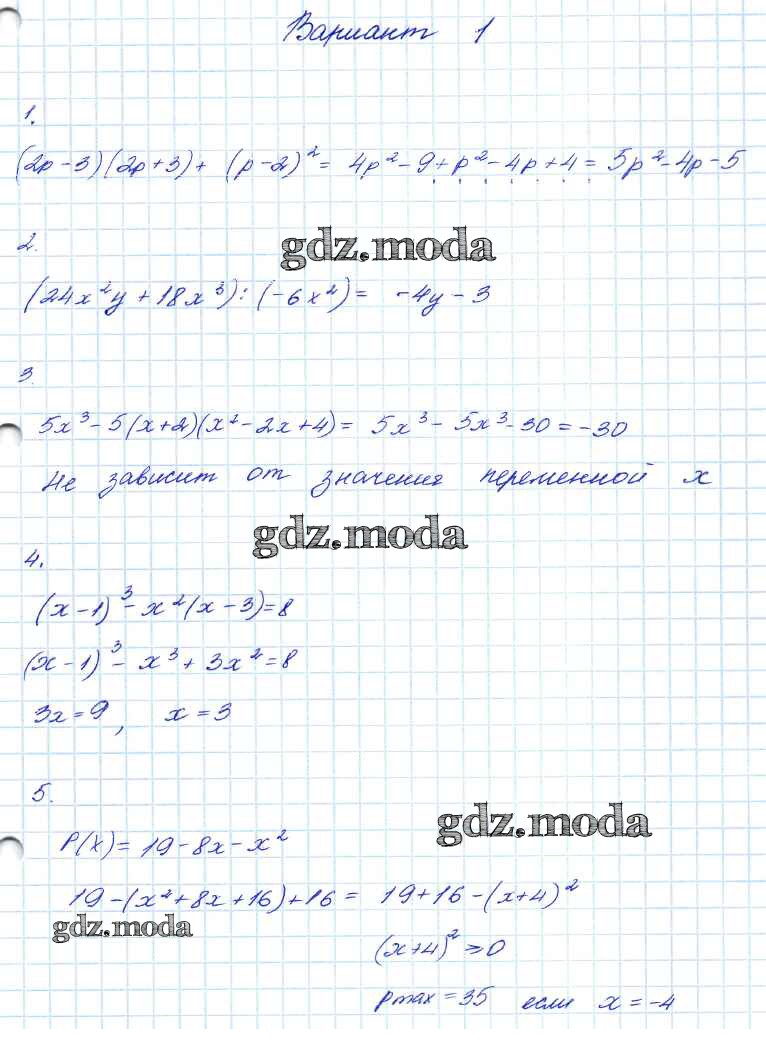 Вариант 1
1.
(2p-3)(2p+3)+ (p-2)²= 4p²-9+p²-4p+4= 5p²-4p-5
2.
gdz.moda
(24x²y+18x³):(-6x²)= -4y-3
3.
5x³-5(x+2)(x²-2x+4)= 5x³-5x³-30=-30
Не зависит от значения переменной x
gdz.moda
4.
(x-1)³-x²(x-3)=8
(x-1)³-x³+3x²=8
3x=9, x=3
5.
gdz.moda
P(x)=19-8x-x²
19-(x²+8x+16)+16= 19+16-(x+4)²
gdz.moda
(x+4)²⩾0
pmax=35 если x=-4